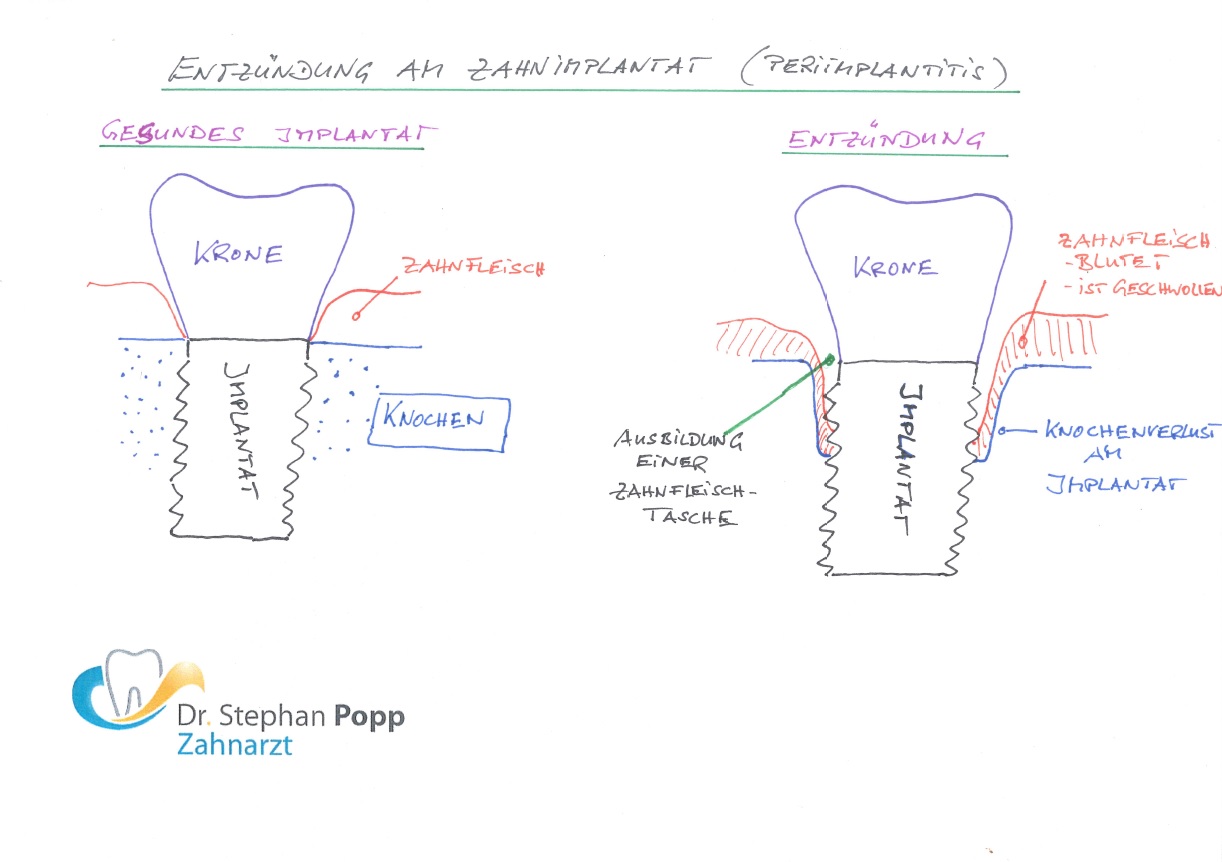 ENTZÜNDUNG AM ZAHNIMPLANTAT (PERIIMPLANTITIS)
GESUNDES IMPLANTAT
KRONE
ZAHNFLEISCH
IMPLANTAT
KNOCHEN
ENTZÜNDUNG
KRONE
ZAHNFLEISCH
-BLUTET
-IST GESCHWOLLEN
IMPLANTAT
AUSBILDUNG
EINER
ZAHNFLEISCH-
TASCHE
KNOCHENVERLUST
AM
IMPLANTAT
Dr. Stephan Popp
Zahnarzt